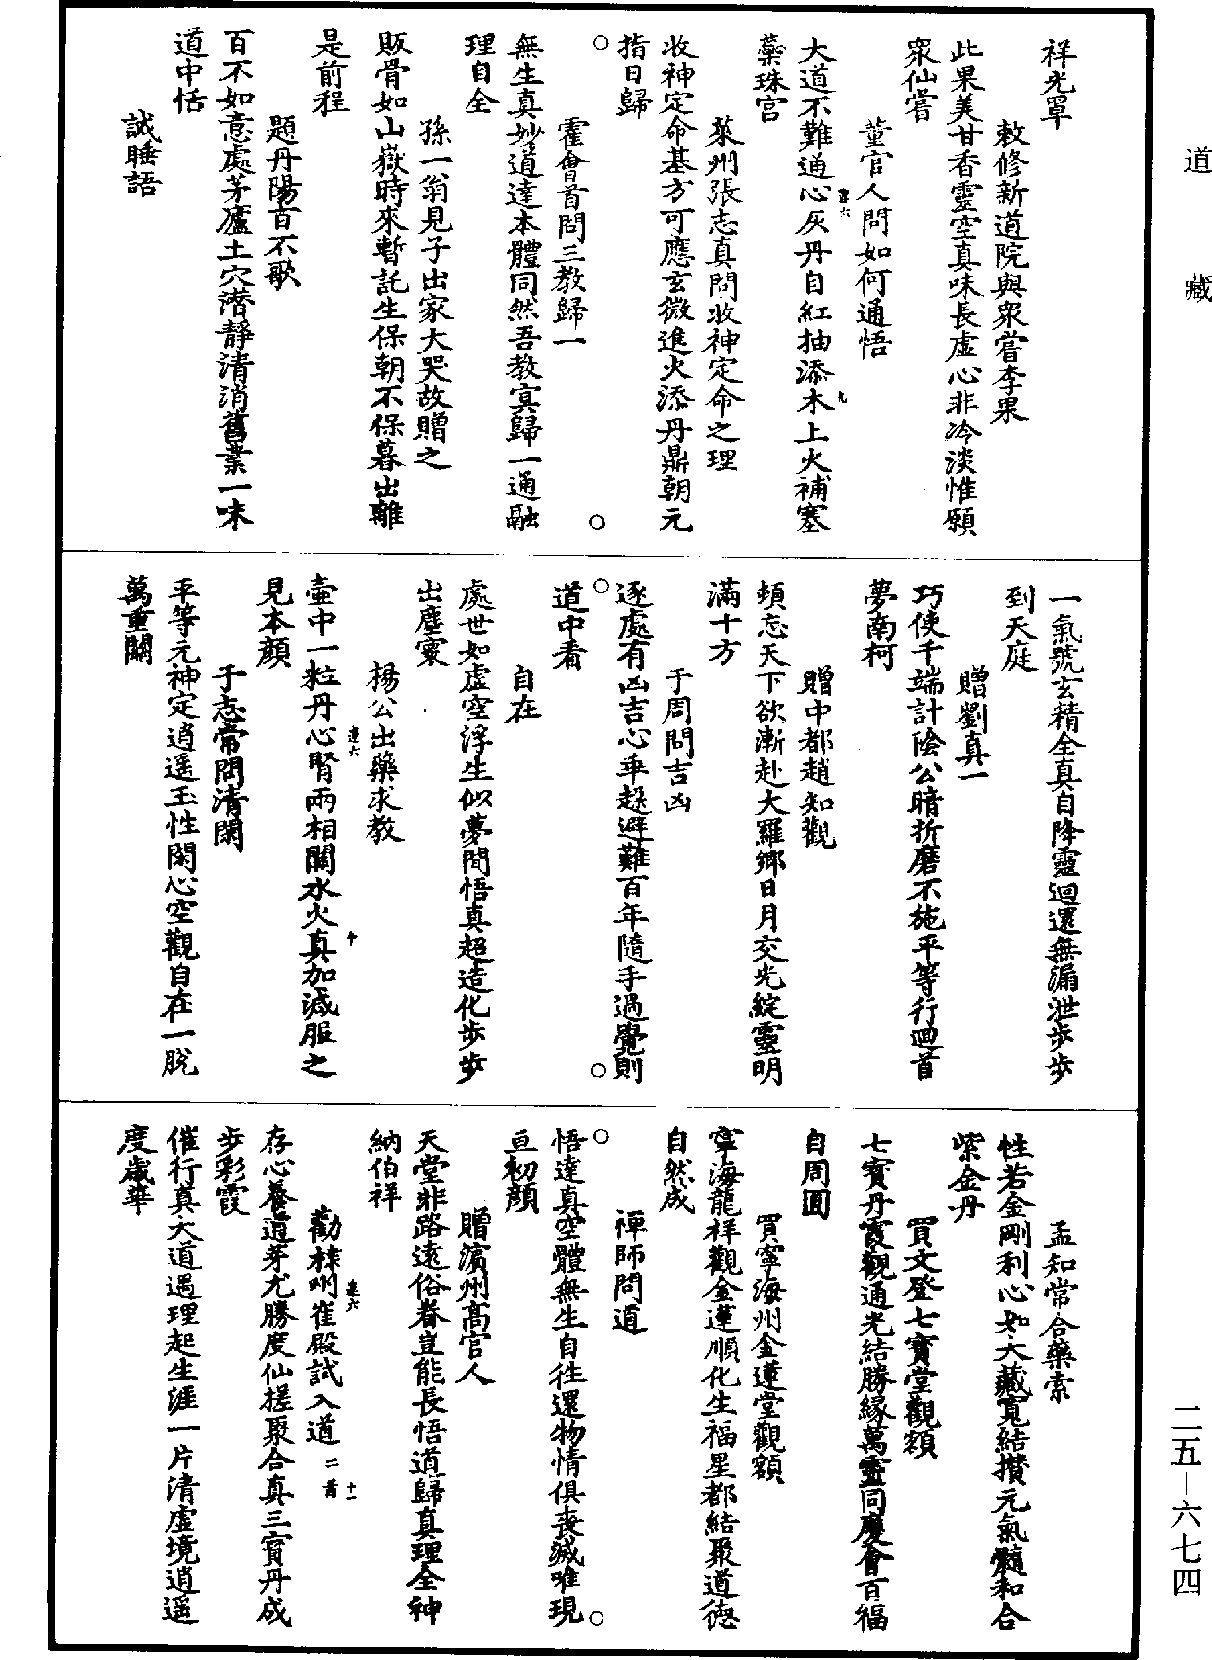 道藏
祥光罩
敕修新道院與衆嘗李果
此果美甘香靈空真味長虛心非冷淡惟願
衆仙嘗
董官人問如何通悟
大道不難通心灰丹自紅抽添木上火補塞
蘂珠宮
萊州張志真問收神定命之理
收神定命基方可應玄微進火添丹鼎朝元
指日歸
霍會首問三教歸一
無生真妙道達本體同然吾教寘歸一通融
理自全
孫一翁見子出家大哭故贈之
販骨如山嶽時來暫託生保朝不保暮出離
是前程
題丹陽百不歌
百不如意處茅廬土穴潛靜清消舊業一味
道中恬
誡睡語
一氣號玄精全真自降靈迴還無漏泄步步
到天庭
贈劉真一
巧使千端計陰公暗折磨不施平等行迴首
夢南柯
贈中都趙知觀
頓忘天下欲漸赴大羅鄉日月交光綻靈明
滿十方
于周問吉凶
逐處有凶吉心乖趂避難百年隨手過覺則
道中看
自在
處世如虛空浮生似夢間悟真超造化步步
出塵寰
楊公出藥求教
壺中一粒丹心腎兩相關水火真加減服之
見本顏
于志常問清閑
平等元神定逍遥玉性閑心空觀自在一脫
萬重關
孟知常合藥索
性若金剛利心如大藏寬結攢元氣髓和合
紫金丹
買文登七寶堂觀額
七寳丹霞觀通光結勝緣萬靈同慶會百福
自周圓
買寧海州金蓮堂觀額
寧海龍祥觀金蓮順化生福星都結聚道德
自然成
禪師問道
悟達真空體無生自往還物情俱喪滅唯現
亘初顏
贈濱州高官人
天堂非路遠俗眷豈能長悟道歸真理全神
納伯祥
勸棣州崔殿試入道二首
存心養道芽尤勝度仙槎聚合真三寳丹成
步彩霞
催行真大道遇理起生涯一片清虛境逍遥
度歲華
二五—六七四